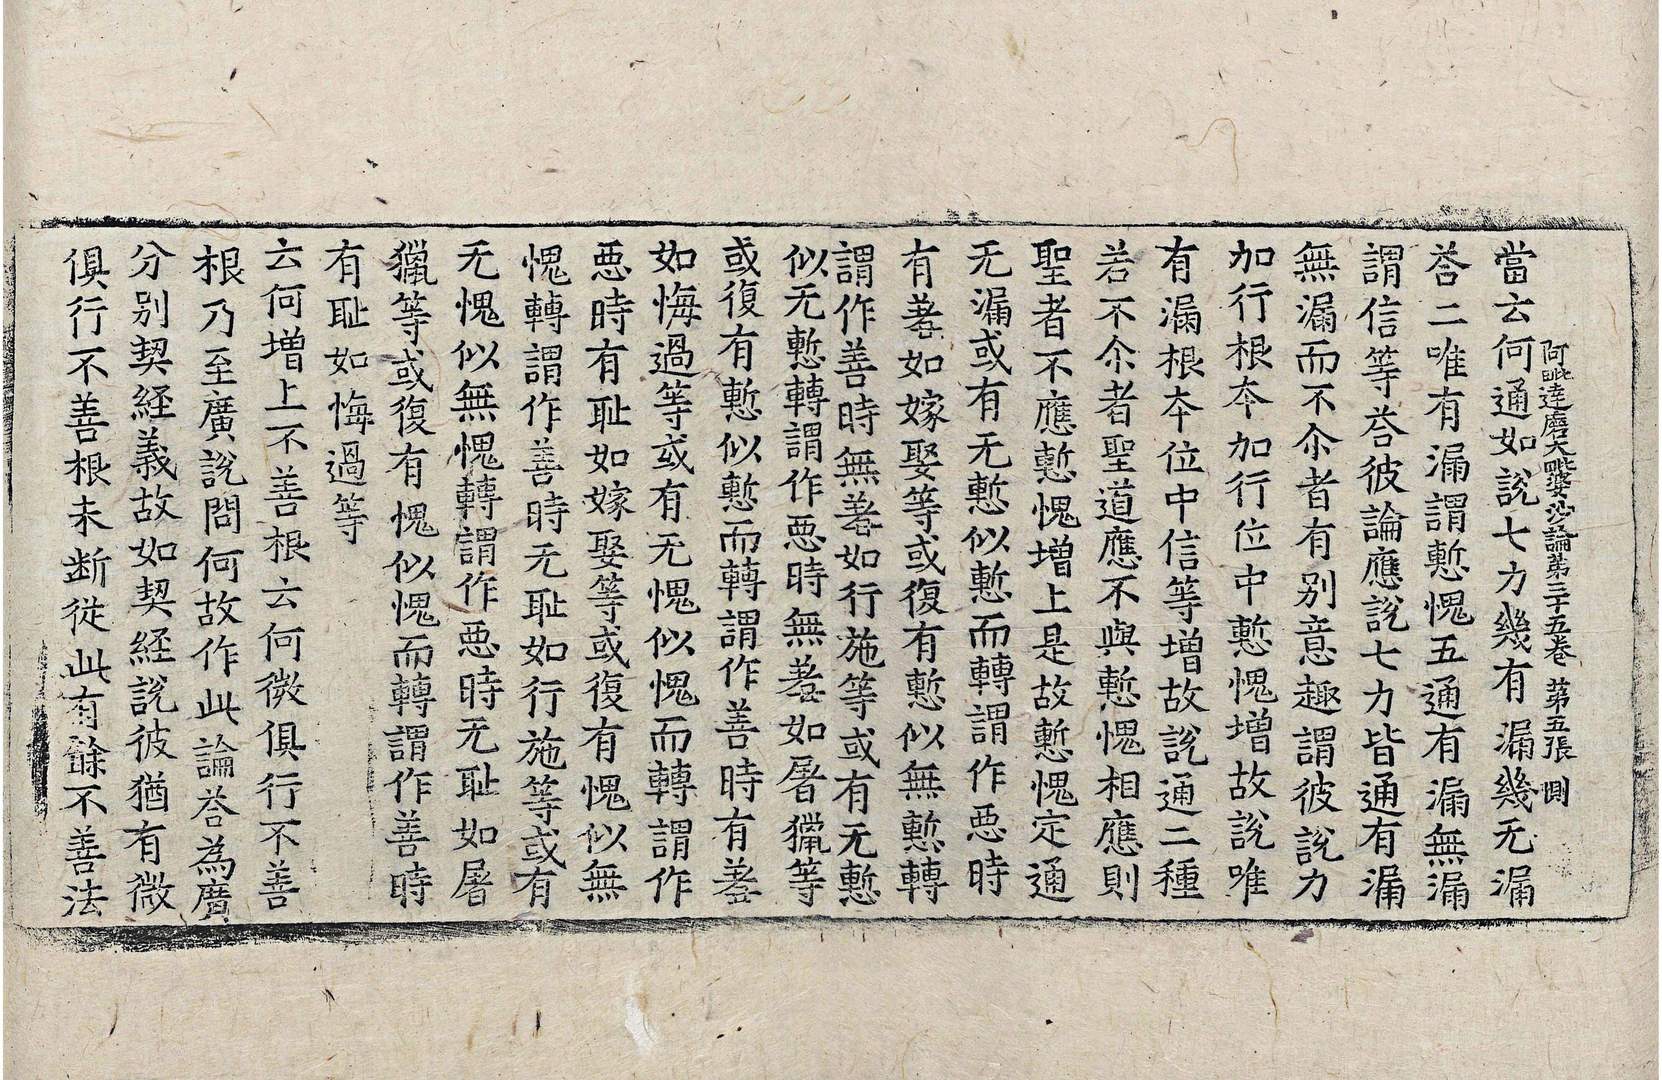 阿毗達磨大毗婆沙論第三十五卷　第五張　惻
當云何通如說七力幾有漏幾无漏
荅二唯有漏謂慙愧五通有漏無漏
謂信等荅彼論應說七力皆通有漏
無漏而不尒者有別意趣謂彼說力
加行根本加行位中慙愧增故說唯
有漏根本位中信等增故說通二種
若不尒者聖道應不與慙愧相應則
聖者不應慙愧增上是故慙愧定通
无漏或有无慙似慙而轉謂作惡時
有羞如嫁娶等或復有慙似無慙轉
謂作善時無羞如行施等或有无慙
似无慙轉謂作惡時無羞如屠獵等
或復有慙似慙而轉謂作善時有羞
如悔過等或有无愧似愧而轉謂作
惡時有耻如嫁娶等或復有愧似無
愧轉謂作善時无耻如行施等或有
无愧似無愧轉謂作惡時无耻如屠
獵等或復有愧似愧而轉謂作善時
有耻如悔過等
云何增上不善根云何微俱行不善
根乃至廣說問何故作此論荅為廣
分別契經義故如契經說彼猶有微
俱行不善根未断從此有餘不善法